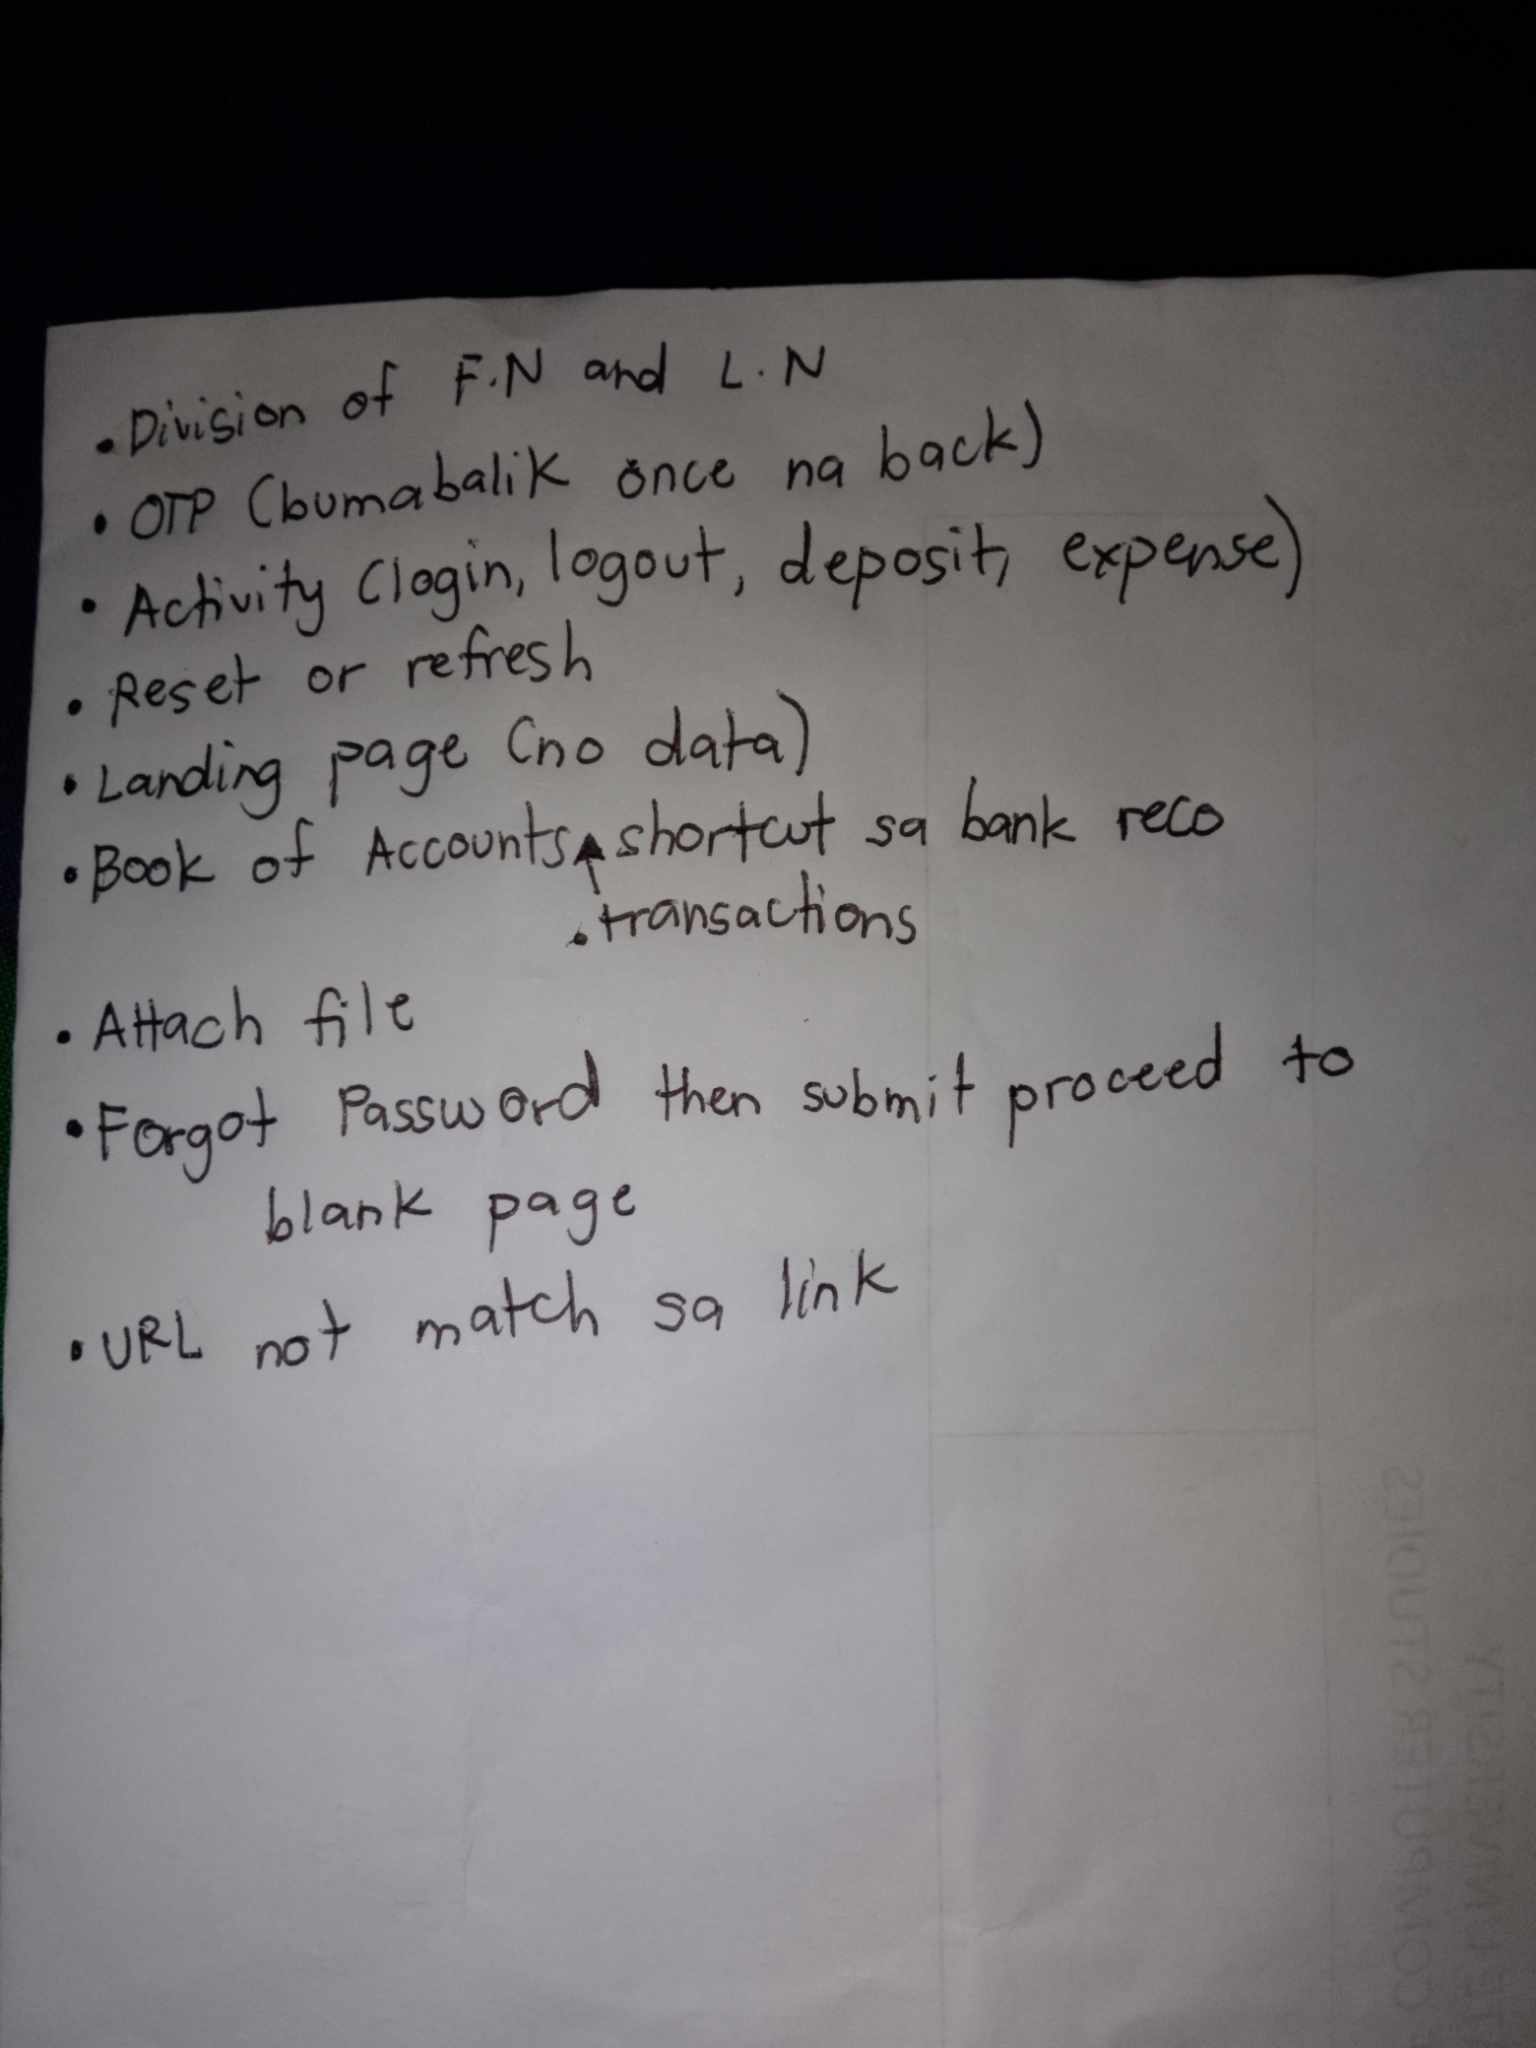 • Division of F.N and L.N
• OTP (bumabalik once na back)
• Activity (login, logout, deposit, expense)
• Reset or refresh
• Landing page (no data)
• Book of Accounts shortcut sa bank reco
• transactions
• Attach file
• Forgot Password then submit proceed to
blank page
• URL not match sa link
COMPUTER STUDIES